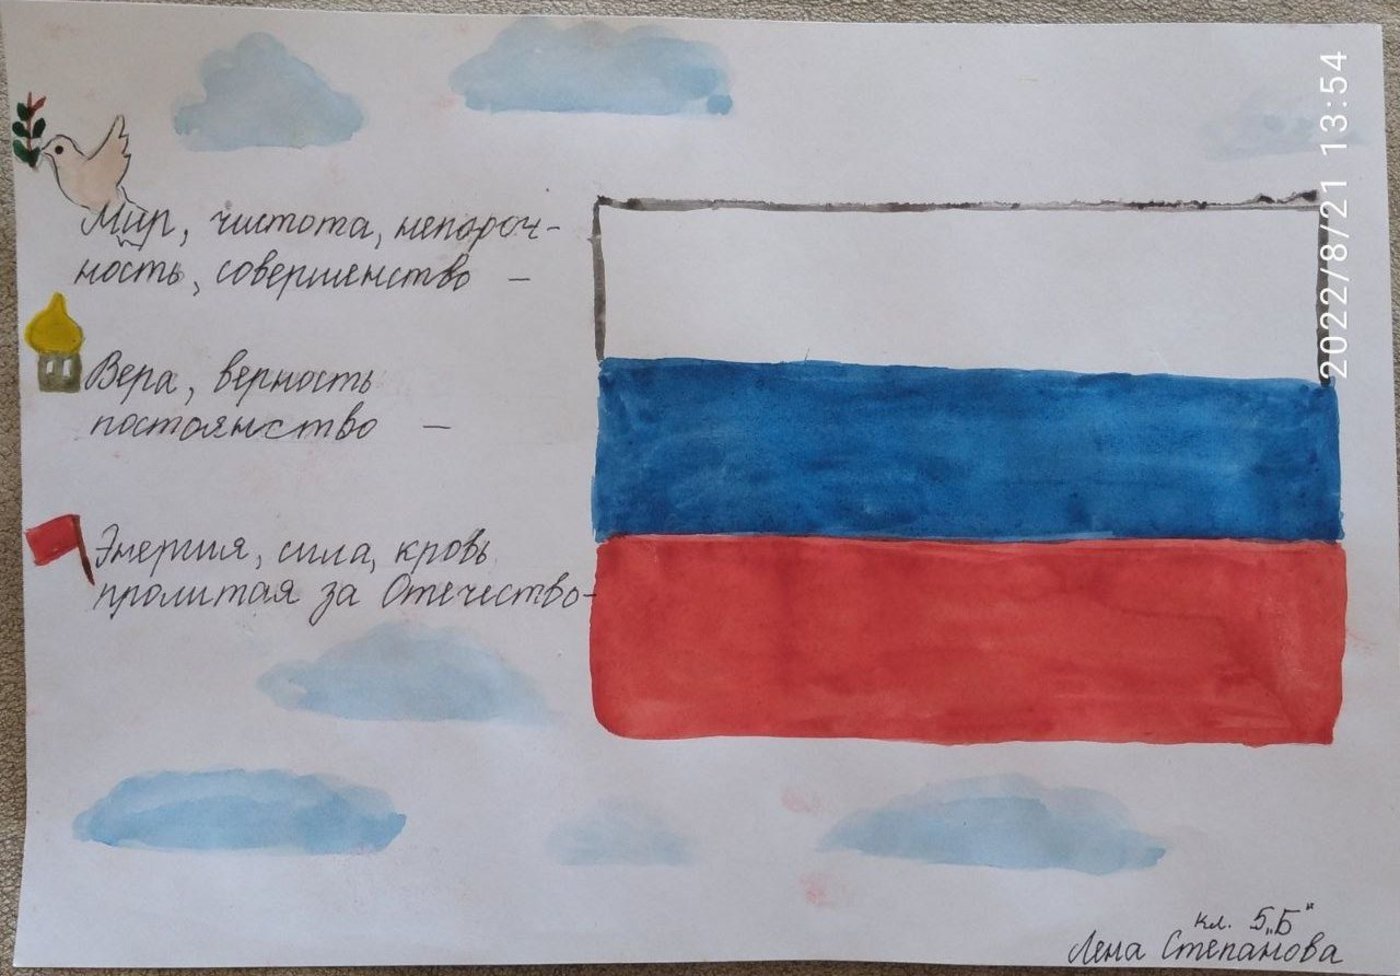 Мир, чистота, непороч-
ность, совершенство –
Вера, верность
постоянство –
Энергия, сила, кровь
пролитая за Отечество-
кл. 5 „Б“
Лена Степанова
2022/8/21 13:54